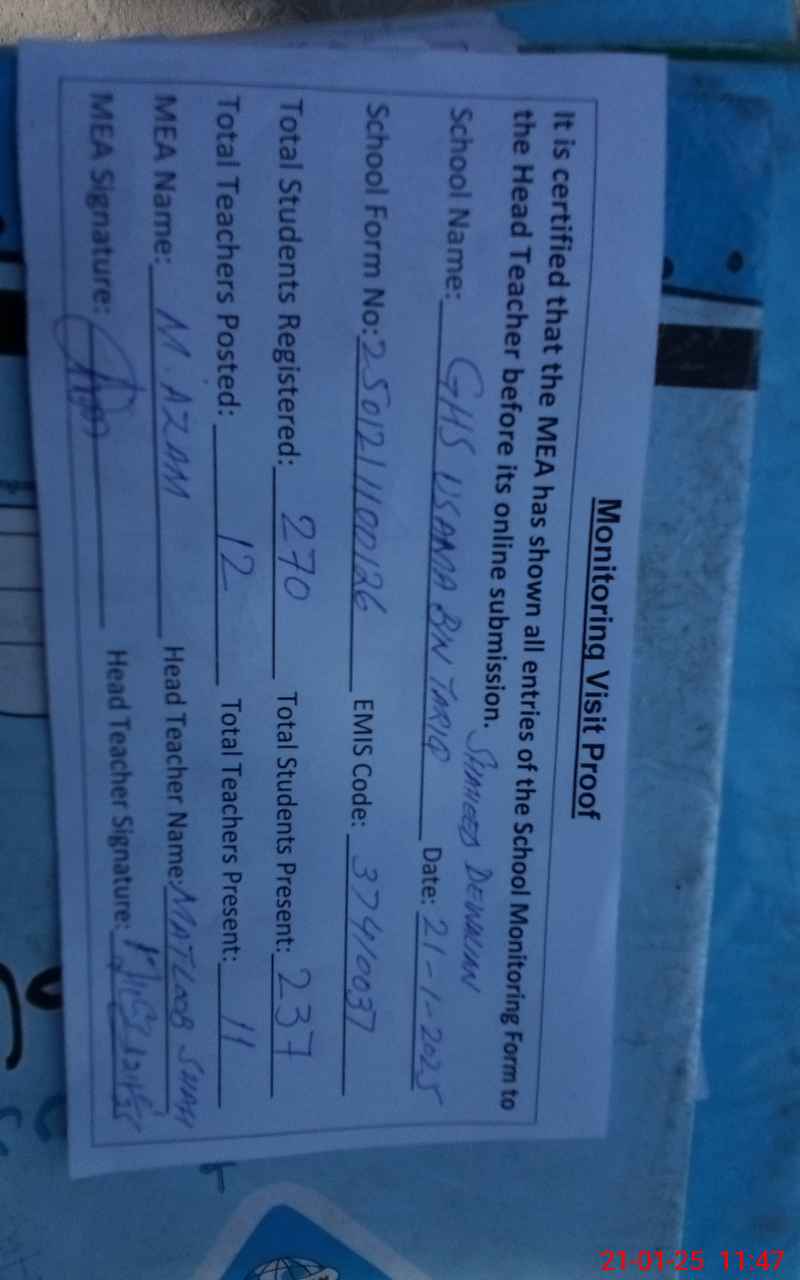 Monitoring Visit Proof
It is certified that the MEA has shown all entries of the School Monitoring Form to
the Head Teacher before its online submission.
SHAHEED
School Name: GHS USAMA BN TARIQ Date: 21-1-2025
School Form No: 2501211100126 EMIS Code: 37410037
Total Students Registered: 270 Total Students Present: 237
Total Teachers Posted: 12 Total Teachers Present: 11
MEA Name: M. AZAM Head Teacher Name: MATLOOB SHAH
MEA Signature: Head Teacher Signature:
21-01-25 11:47